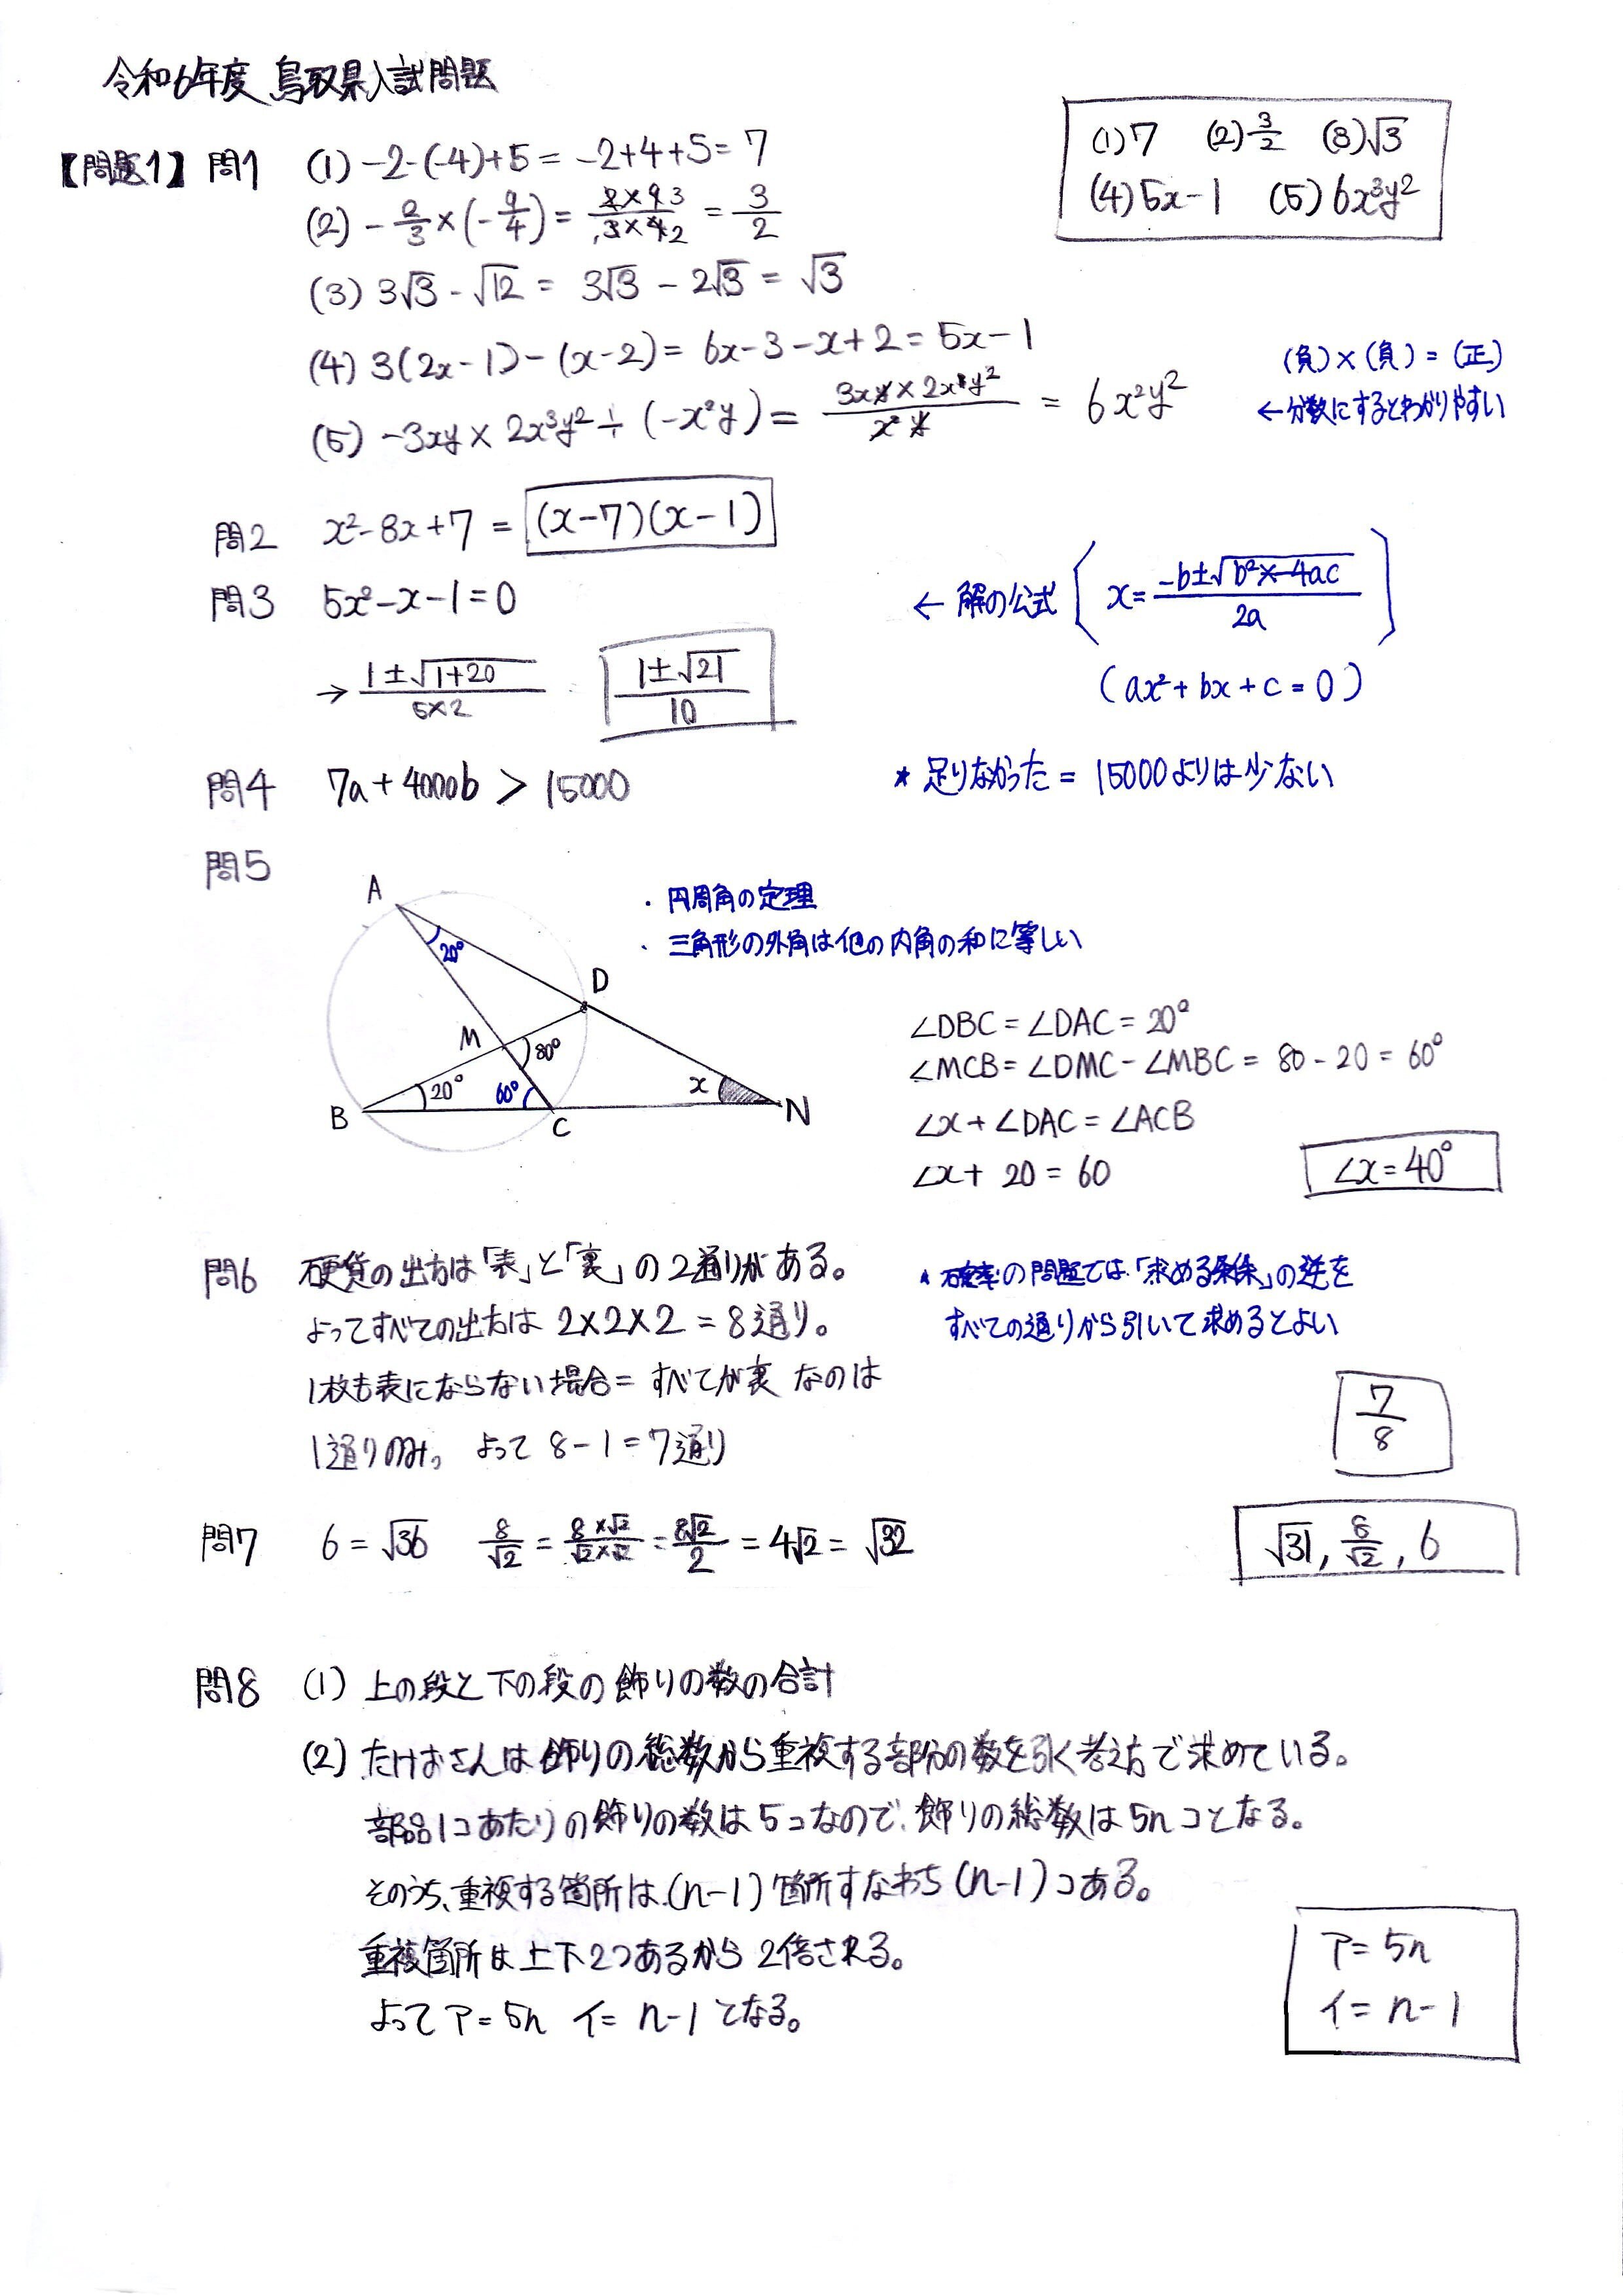 令和6年度 鳥取県入試問題
【問題1】 問1 (1) -2-(-4)+5 = -2+4+5= 7
(2) -2/3 × (-9/4) = 2×9 3/3×4 2 = 3/2
(3) 3√3 - √12 = 3√3 - 2√3 = √3
(4) 3(2x-1)-(x-2)= 6x-3-x+2= 5x-1
(5) -3xy × 2x³y² ÷ (-x²y) = 3xy × 2x³y²/x²y = 6x²y²
(1)7 (2)3/2 (3)√3
(4)5x-1 (5)6x³y²
(負)×(負)=(正)
←分数にするとわかりやすい
問2 x²-8x+7 = (x-7)(x-1)
問3 5x²-x-1=0
→ 1±√1+20/5×2 1±√21/10
← 解の公式 [ x= -b±√b²×-4ac/2a ]
(ax²+bx+c=0)
問4 7a+4000b > 15000
* 足りなかった = 15000よりは少ない
問5
・円周角の定理
・三角形の外角は他の内角の和に等しい
A
20°
D
M
80°
B
20°
60°
C
x
N
∠DBC=∠DAC=20°
∠MCB=∠DMC-∠MBC= 80-20=60°
∠x+∠DAC=∠ACB
∠x+ 20=60
∠x=40°
問6 硬貨の出方は「表」と「裏」の2通りがある。
よってすべての出方は 2×2×2 = 8通り。
1枚も表にならない場合= すべてが裏 なのは
1通りのみ。 よって 8-1=7通り
* 確率の問題では「求める条件」の逆を
すべての通りから引いて求めるとよい
7/8
問7 6=√36 8/√2 = 8×√2/√2×√2 = 8√2/2 = 4√2 = √32
√31, 8/√2, 6
問8 (1) 上の段と下の段の飾りの数の合計
(2) たけおさんは飾りの総数から重複する部分の数を引く考え方で求めている。
部品1コあたりの飾りの数は5コなので、飾りの総数は5nコとなる。
そのうち、重複する箇所は(n-1)箇所すなわち(n-1)コある。
重複箇所は上下2つあるから2倍される。
よって ア=5n イ= n-1 となる。
ア= 5n
イ= n-1